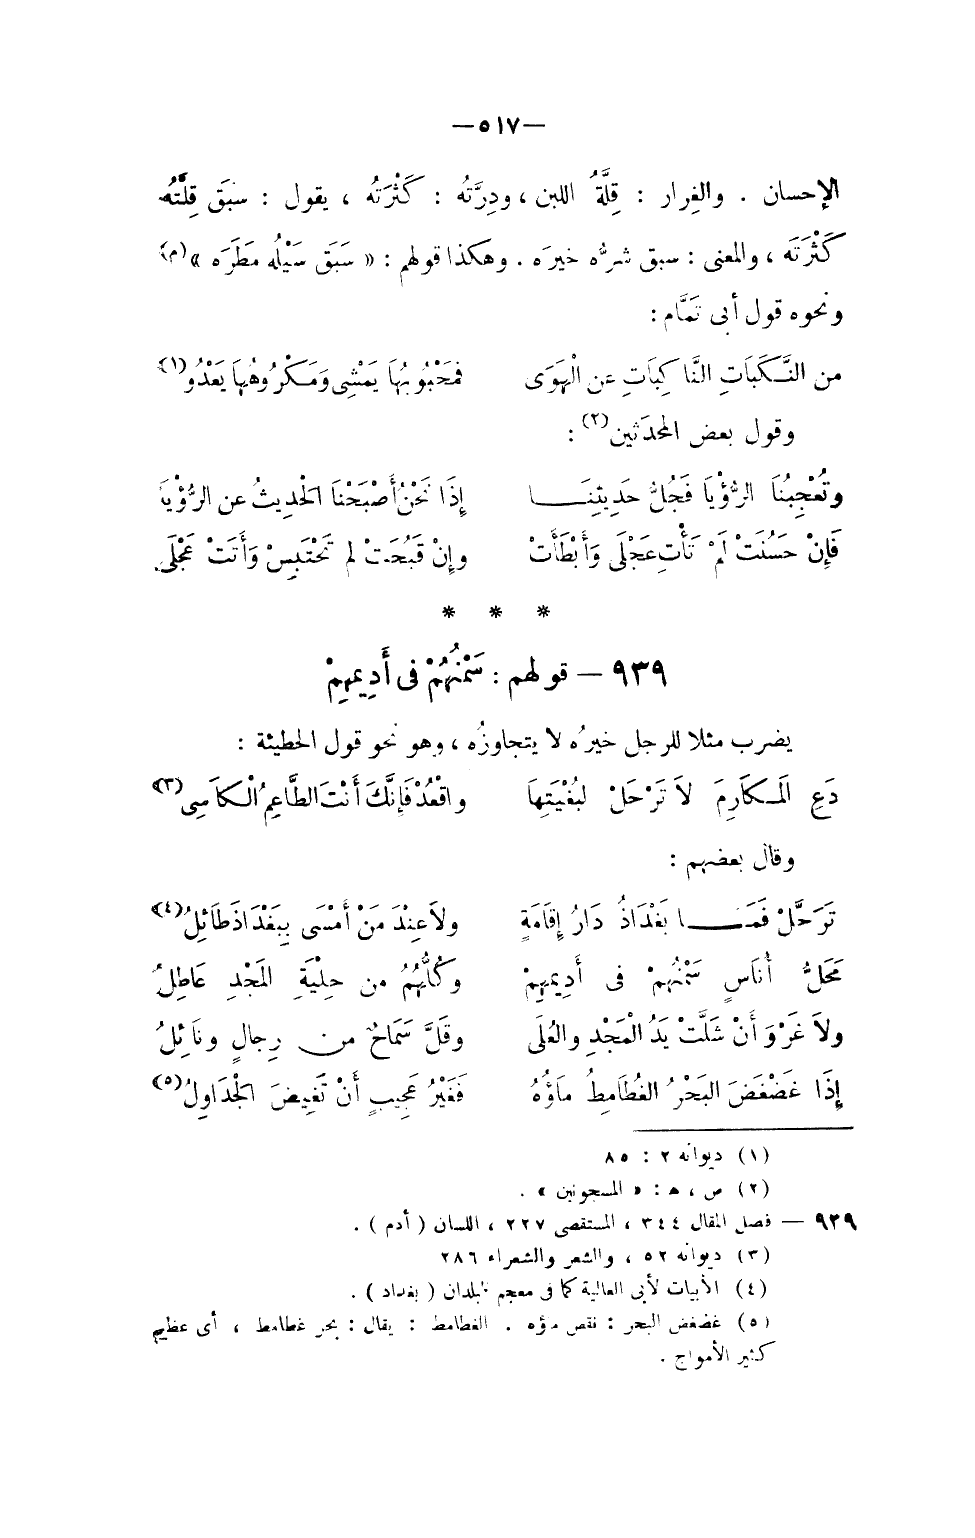 —٥١٧—
الإحسان . والغِرار : قِلَّةُ اللبن ، ودِرَّتُه : كَثْرَتُه ، يقول : سَبَق قِلَّتُه
كَثْرَتَه ، والمعنى : سبق شرُّه خيرَه . وهكذا قولهم : « سَبَق سَيْلُه مَطَرَه »(م)
ونحوه قول أبى تمَّام :
من النَّكَبَاتِ النَّاكِبَاتِ عن الْهَوَى فمَحْبُوبُهَا يَمْشِى وَمَكْرُوهُهَا يَعْدُو(١)
وقول بعض المحدَثين(٢) :
وتُعْجِبُنَا الرُّؤْيَا فَجُلُّ حَدِيثِنَا إِذَا نَحْنُ أَصْبَحْنَا الحَدِيثُ عن الرُّؤْيَا
فَإِنْ حَسُنَتْ لَمْ تَأْتِ عَجْلَى وَأَبْطَأَتْ وإِنْ قَبُحَتْ لم تَحْتَبِسْ وَأَتَتْ عَجْلَى.
* * *
٩٣٩ — قولهم : سَمْنُهُمْ فى أَدِيمِهِمْ
يضرب مثلا للرجل خيرُه لا يتجاوزُه ، وهو نحو قول الحطيئة :
دَعِ المَكَارِمَ لاَ تَرْحَلْ لبُغْيَتِهَا واقْعُدْ فَإِنَّكَ أَنْتَ الطَّاعِمُ الْكَاسِى(٣)
وقال بعضهم :
تَرَحَّلْ فَمَا بَغْدَاذُ دَارُ إِقَامَةٍ ولاَ عِنْدَ مَنْ أَمْسَى بِبَغْدَاذَ طَائِلُ(٤)
مَحَلُّ أُنَاسٍ سَمْنُهُمْ فى أَدِيمِهِمْ وَكُلُّهُمُ من حِلْيَةِ المَجْدِ عَاطِلُ
ولاَ غَرْوَ أَنْ شَلَّتْ يَدُ الْمَجْدِ والعُلَى وقَلَّ سَمَاحٌ من رِجالٍ ونَائِلُ
إِذَا غَضْغَضَ البَحْرُ الغُطَامِطُ مَاؤُهُ فَغَيْرُ عَجِيبٍ أَنْ تَغِيضَ الجَدَاوِلُ(٥)
(١) ديوانه ٢ : ٨٥
(٢) ص ، هـ : « المسجونين » .
٩٣٩ — فصل المقال ٣٤٤ ، المستقصى ٢٢٧ ، اللسان ( أدم ) .
(٣) ديوانه ٥٢ ، والشعر والشعراء ٢٨٦
(٤) الأبيات لأبى العالية كما فى معجم البلدان ( بغداد ) .
(٥) غضغض البحر : نقص ماؤه . الغطامط : يقال : بحر غطامط ، أى عظيم
كثير الأمواج .